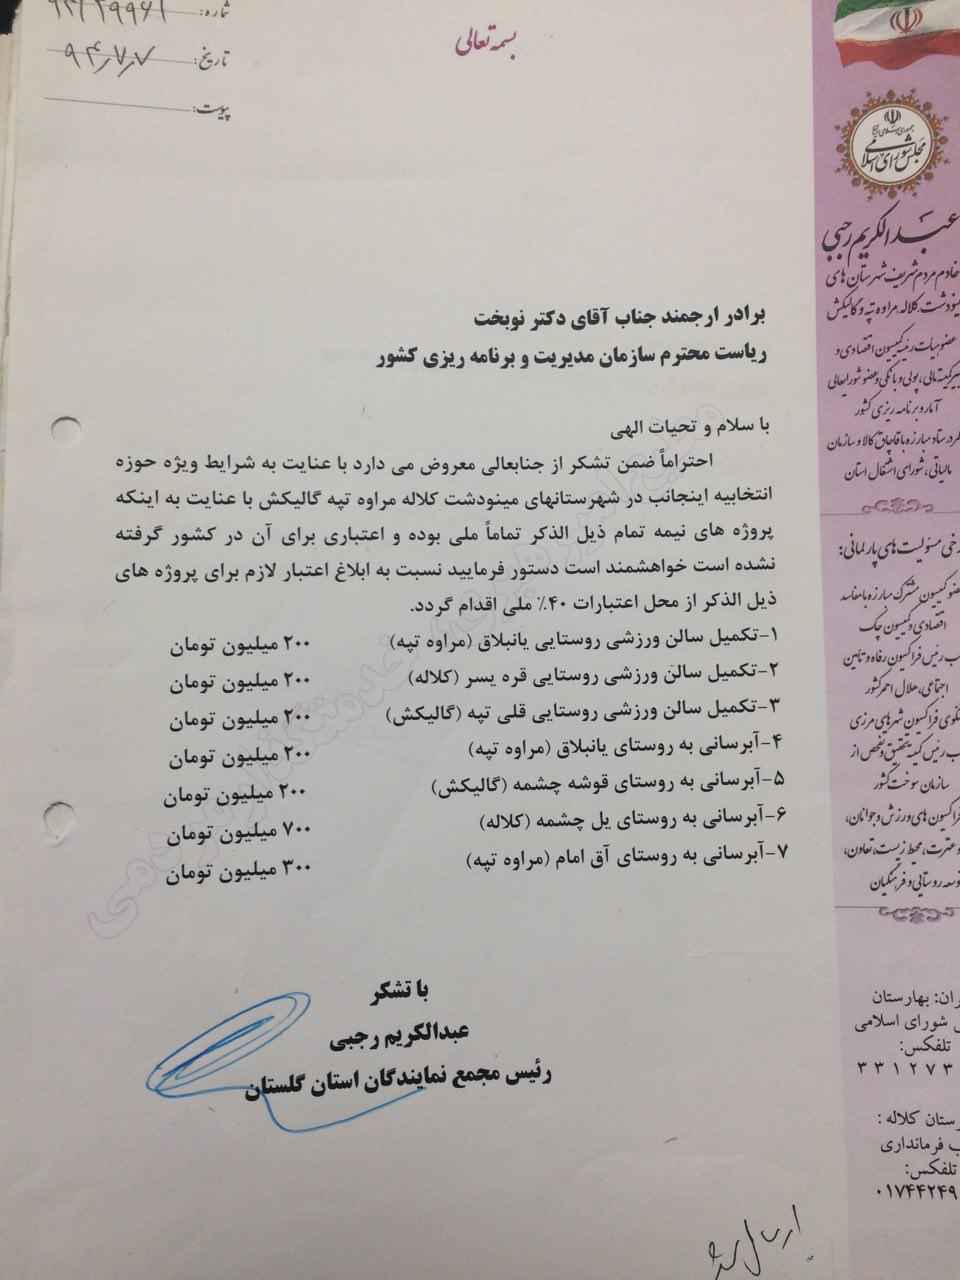 بسمه تعالی
شماره:
تاریخ: ۹۴/۷/۷
پیوست:
برادر ارجمند جناب آقای دکتر نوبخت
ریاست محترم سازمان مدیریت و برنامه ریزی کشور
با سلام و تحیات الهی
احتراماً ضمن تشکر از جنابعالی معروض می دارد با عنایت به شرایط ویژه حوزه
انتخابیه اینجانب در شهرستانهای مینودشت کلاله مراوه تپه گالیکش با عنایت به اینکه
پروژه های نیمه تمام ذیل الذکر تماماً ملی بوده و اعتباری برای آن در کشور گرفته
نشده است خواهشمند است دستور فرمایید نسبت به ابلاغ اعتبار لازم برای پروژه های
ذیل الذکر از محل اعتبارات ۴۰٪ ملی اقدام گردد.
۱-تکمیل سالن ورزشی روستایی یانبلاق (مراوه تپه) ۲۰۰ میلیون تومان
۲-تکمیل سالن ورزشی روستایی قره یسر (کلاله) ۲۰۰ میلیون تومان
۳-تکمیل سالن ورزشی روستایی قلی تپه (گالیکش) ۲۰۰ میلیون تومان
۴-آبرسانی به روستای یانبلاق (مراوه تپه) ۲۰۰ میلیون تومان
۵-آبرسانی به روستای قوشه چشمه (گالیکش) ۲۰۰ میلیون تومان
۶-آبرسانی به روستای یل چشمه (کلاله) ۷۰۰ میلیون تومان
۷-آبرسانی به روستای آق امام (مراوه تپه) ۳۰۰ میلیون تومان
با تشکر
عبدالکریم رجبی
رئیس مجمع نمایندگان استان گلستان
ارسال شد
مجلس شورای اسلامی
عبدالکریم رجبی
خادم مردم شریف شهرستان های
مینودشت، کلاله، مراوه تپه و گالیکش
عضو هیات رئیسه کمیسیون اقتصادی و
کمیته مالی، پولی و بانکی و عضو شورایعالی
آمار و برنامه ریزی کشور
ستاد مبارزه با قاچاق کالا و سازمان
مالیاتی، شورای اشتغال استان
برخی مسئولیت های پارلمانی:
عضو کمیسیون مشترک مبارزه با مفاسد
اقتصادی و کمیسیون چک
رئیس فراکسیون رفاه و تامین
اجتماعی، هلال احمر کشور
سخنگوی فراکسیون شهرهای مرزی
رئیس کمیته تحقیق و تفحص از
سازمان سوخت کشور
فراکسیون های ورزش و جوانان،
و عترت، محیط زیست، تعاون،
توسعه روستایی و فرهنگیان
تهران: بهارستان
شورای اسلامی
تلفکس:
۳۳۱۲۷۳
شهرستان کلاله :
فرمانداری
تلفکس:
۰۱۷۴۴۲۴۹